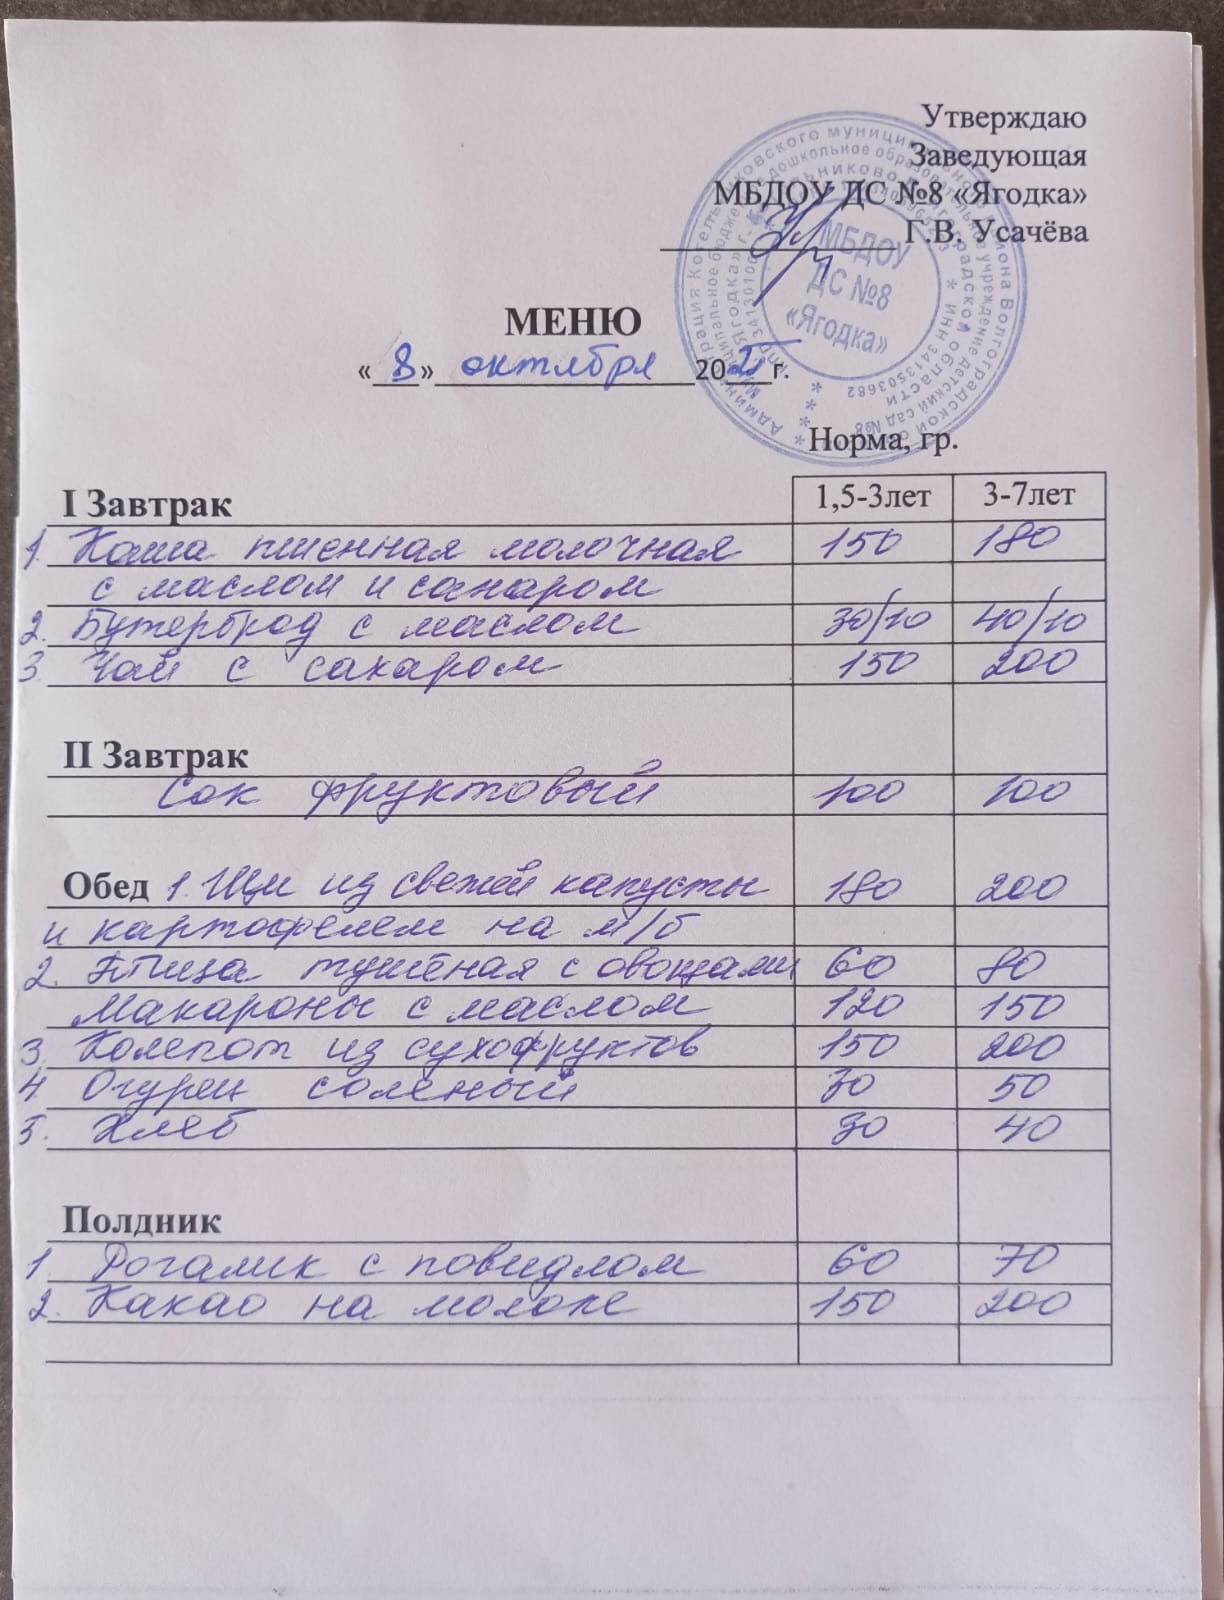 Утверждаю
Заведующая
МБДОУ ДС №8 «Ягодка»
Г.В. Усачёва
МБДОУ
ДС №8
«Ягодка»
МЕНЮ
« 8 » октября 2025 г.
Норма, гр.
I Завтрак 1,5-3лет 3-7лет
1. Каша пшенная молочная 150 180
с маслом и сахаром
2. Бутерброд с маслом 30/10 40/10
3. Чай с сахаром 150 200
II Завтрак
Сок фруктовый 100 100
Обед 1. Щи из свежей капусты 180 200
и картофелем на м/б
2. Птица тушёная с овощами 60 80
Макароны с маслом 120 150
3. Компот из сухофруктов 150 200
4. Огурец соленый 30 50
5. Хлеб 30 40
Полдник
1 Рогалик с повидлом 60 70
2. Какао на молоке 150 200